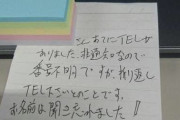 あてにTELが
ありました。非通知なので
番号不明ですが折り返し
TEL下さいとのことです。
お名前は聞き忘れました!